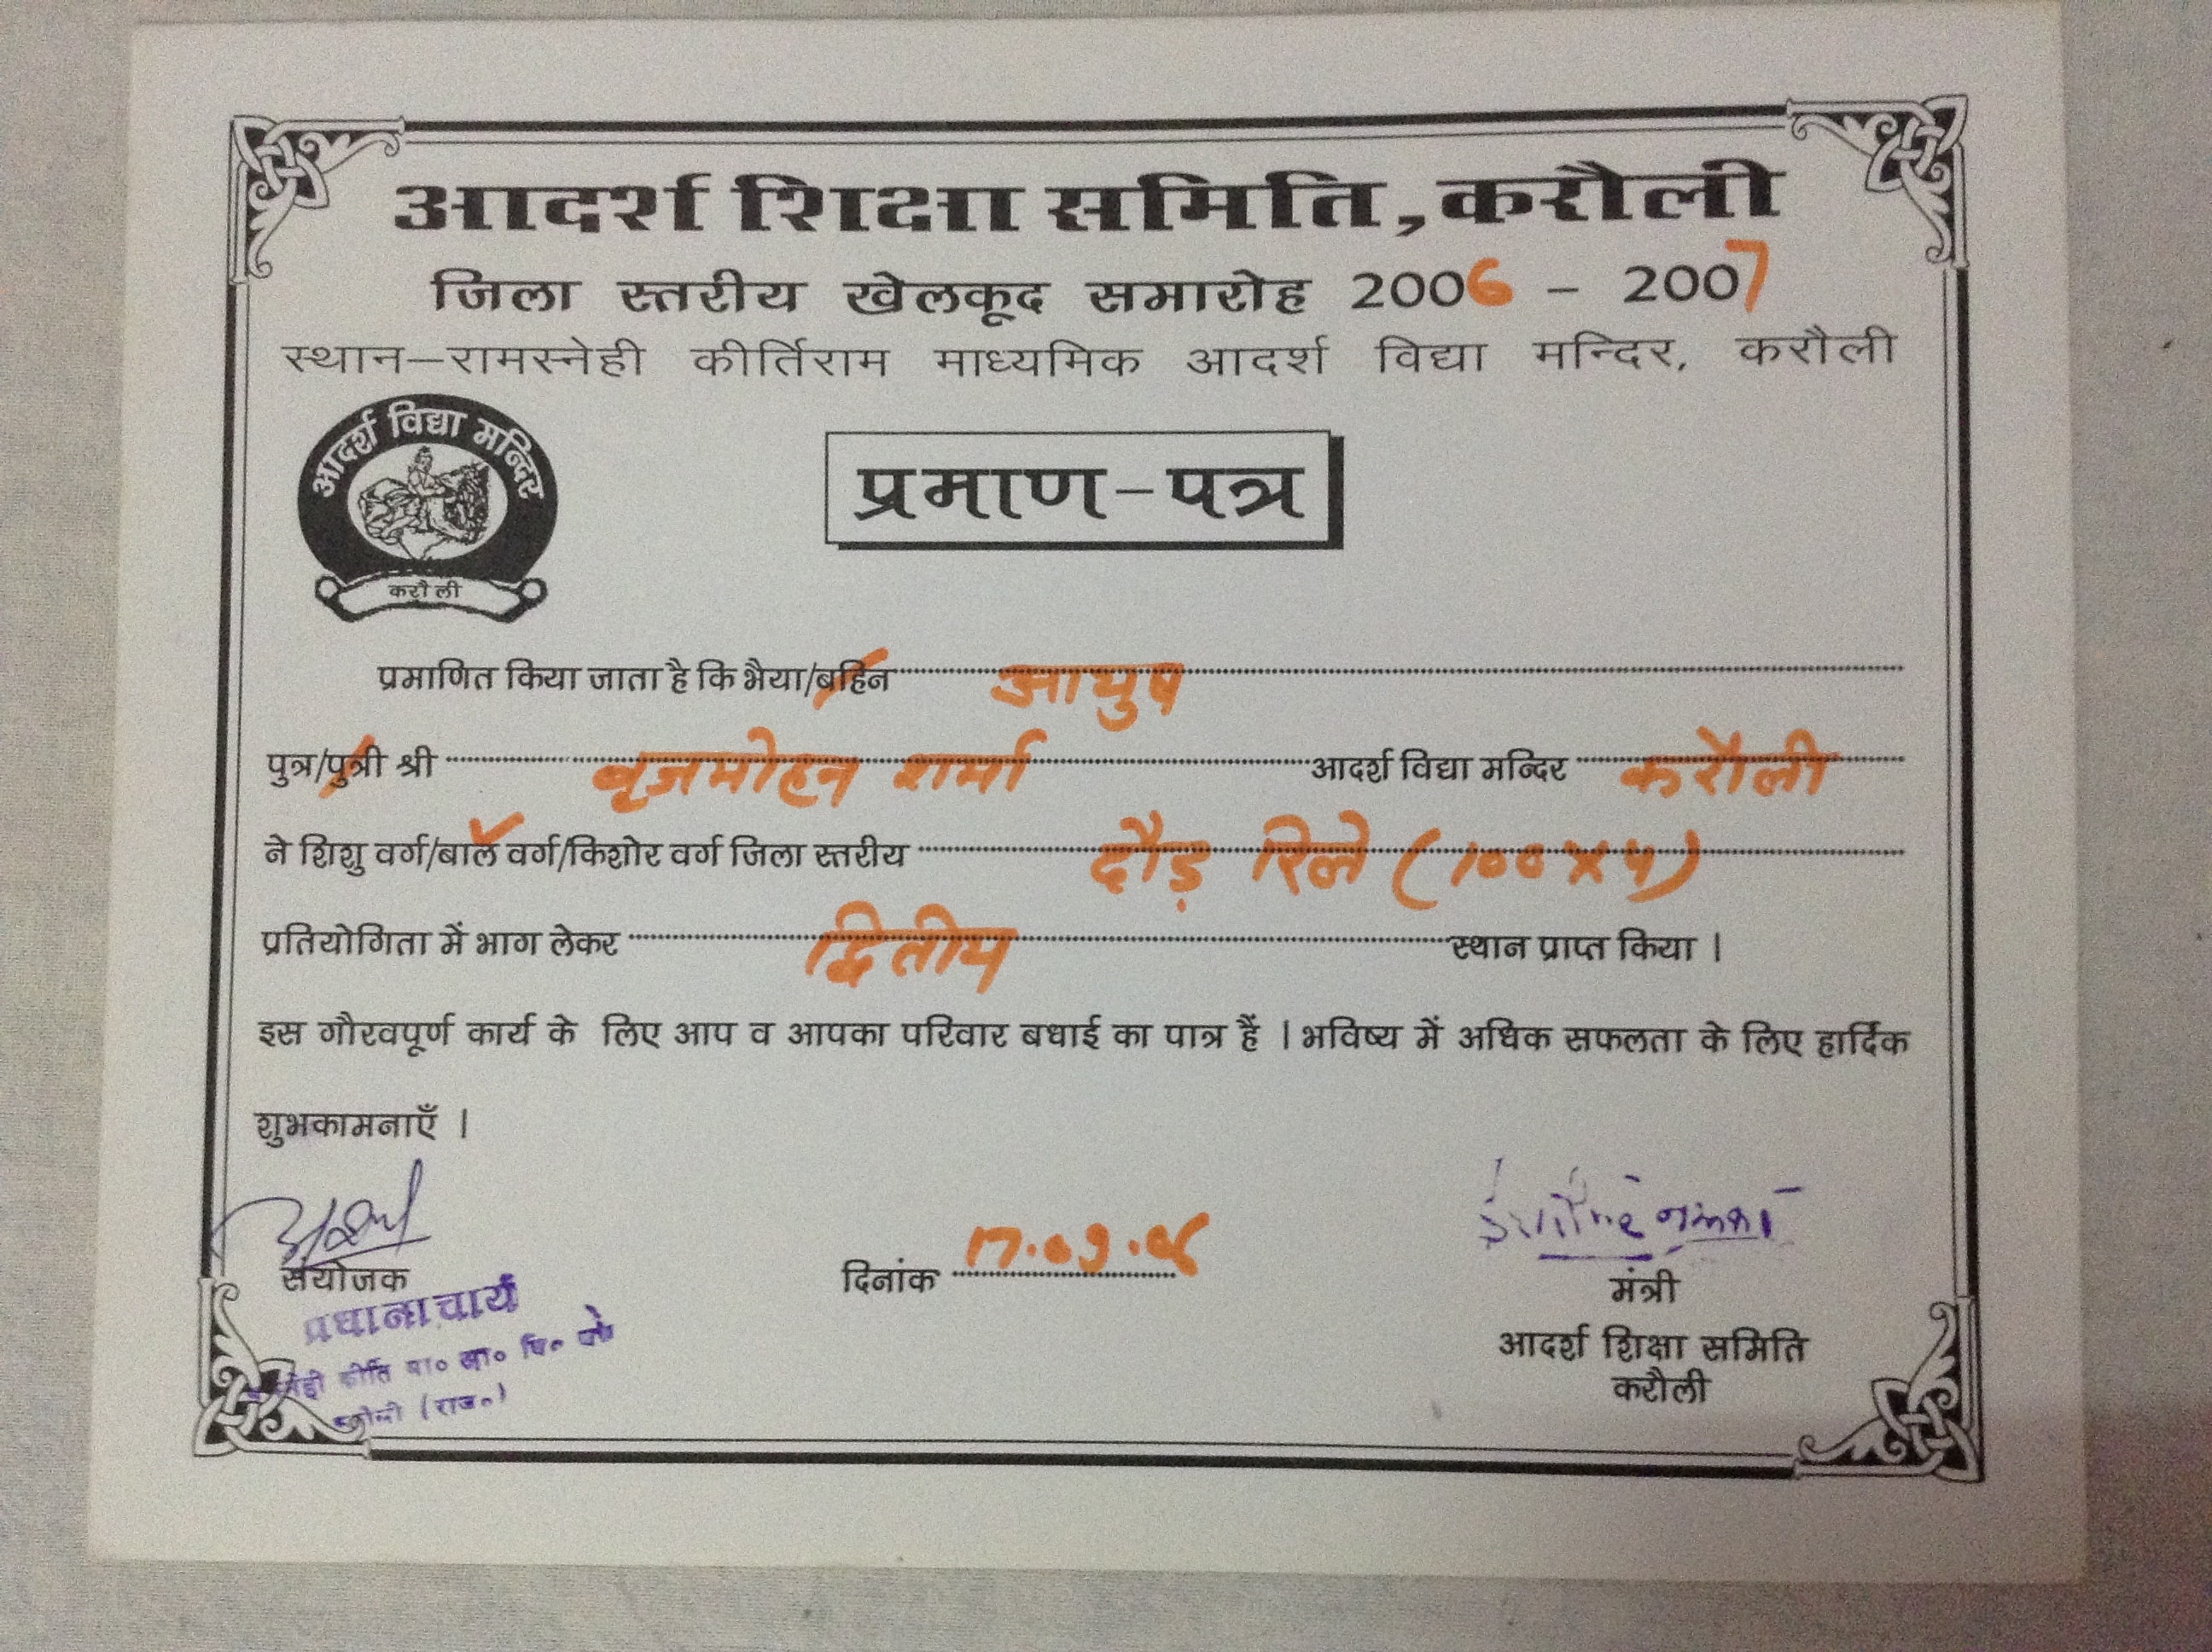 आदर्श शिक्षा समिति, करौली
जिला स्तरीय खेलकूद समारोह 2006 - 2007
स्थान-रामस्नेही कीर्तिराम माध्यमिक आदर्श विद्या मन्दिर, करौली
आदर्श विद्या मन्दिर
करौली
प्रमाण-पत्र
प्रमाणित किया जाता है कि भैया/बहिन आयुष
पुत्र/पुत्री श्री बृजमोहन शर्मा आदर्श विद्या मन्दिर करौली
ने शिशु वर्ग/बाल वर्ग/किशोर वर्ग जिला स्तरीय दौड़ रिले (100x4)
प्रतियोगिता में भाग लेकर द्वितीय स्थान प्राप्त किया ।
इस गौरवपूर्ण कार्य के लिए आप व आपका परिवार बधाई का पात्र हैं । भविष्य में अधिक सफलता के लिए हार्दिक
शुभकामनाएँ ।
संयोजक
प्रधानाचार्य
करौली (राज०)
दिनांक 17.09.06
मंत्री
आदर्श शिक्षा समिति
करौली